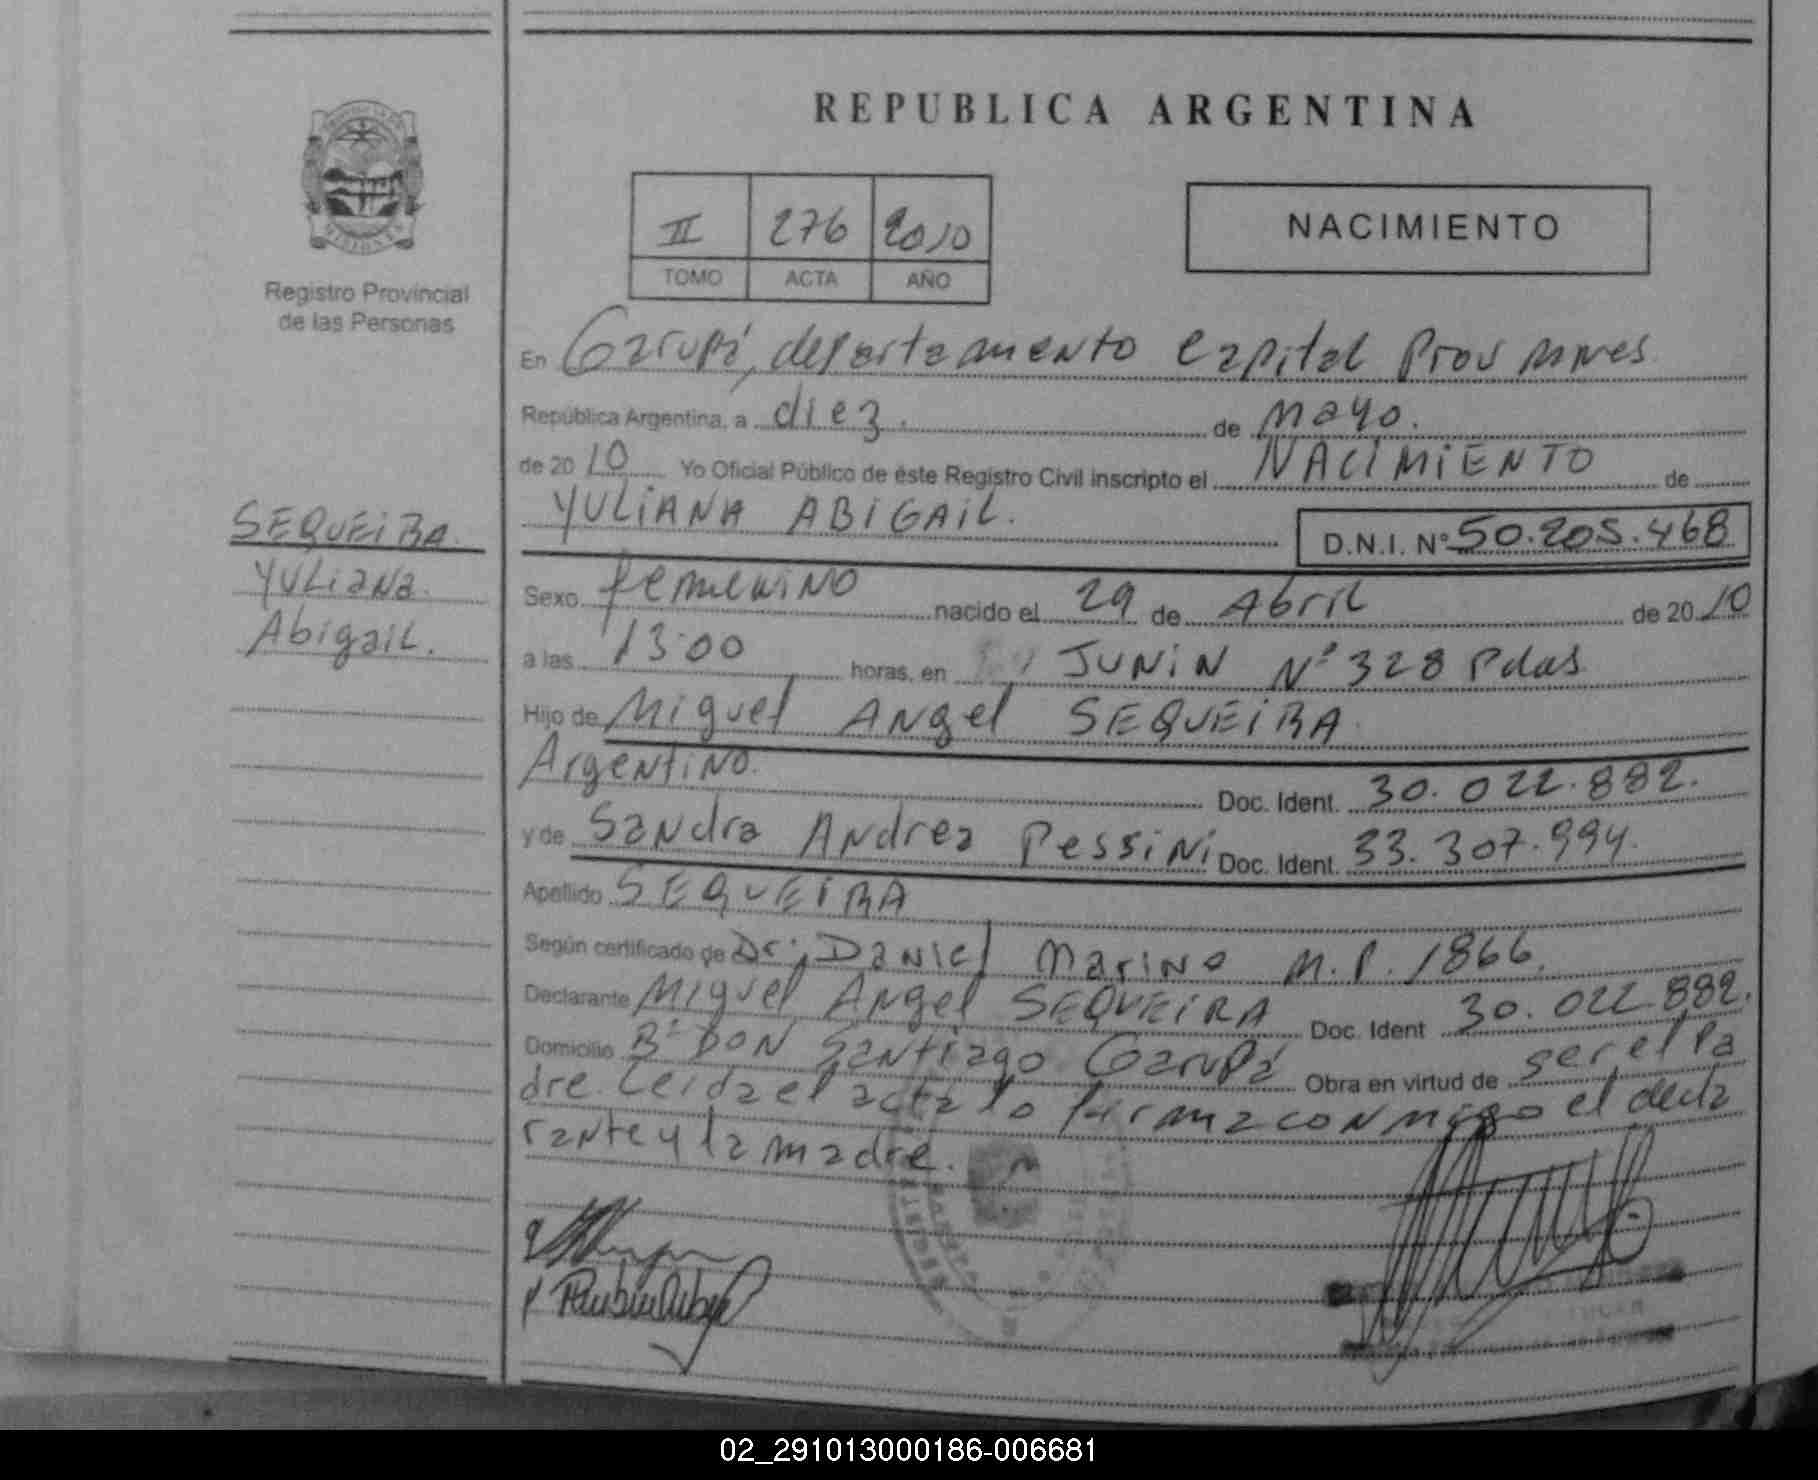 REPUBLICA ARGENTINA
II 276 2010
TOMO ACTA AÑO
NACIMIENTO
Registro Provincial
de las Personas
SEQUEIRA
YULiana
Abigail.
En Garupá, departamento Capital Prov Mnes
República Argentina, a diez. de mayo.
de 2010 Yo Oficial Público de este Registro Civil inscripto el NACIMIENTO de
YULIANA ABIGAIL.
D.N.I. Nº 50.205.468
Sexo femenino nacido el 29 de Abril de 2010
a las 13:00 horas, en JUNIN Nº 328 Pdas
Hijo de Miguel Angel SEQUEIRA.
Argentino. Doc. Ident. 30.022.882.
y de Sandra Andrea Pessini Doc. Ident. 33.307.994.
Apellido SEQUEIRA
Según certificado de Dr. Daniel Marino M.P. 1866.
Declarante Miguel Angel SEQUEIRA Doc. Ident 30.022.882.
Domicilio Bº DON Santiago Garupá Obra en virtud de ser el Pa
dre. Leida el acta lo firma conmigo el decla
rante y la madre.
02_291013000186-006681